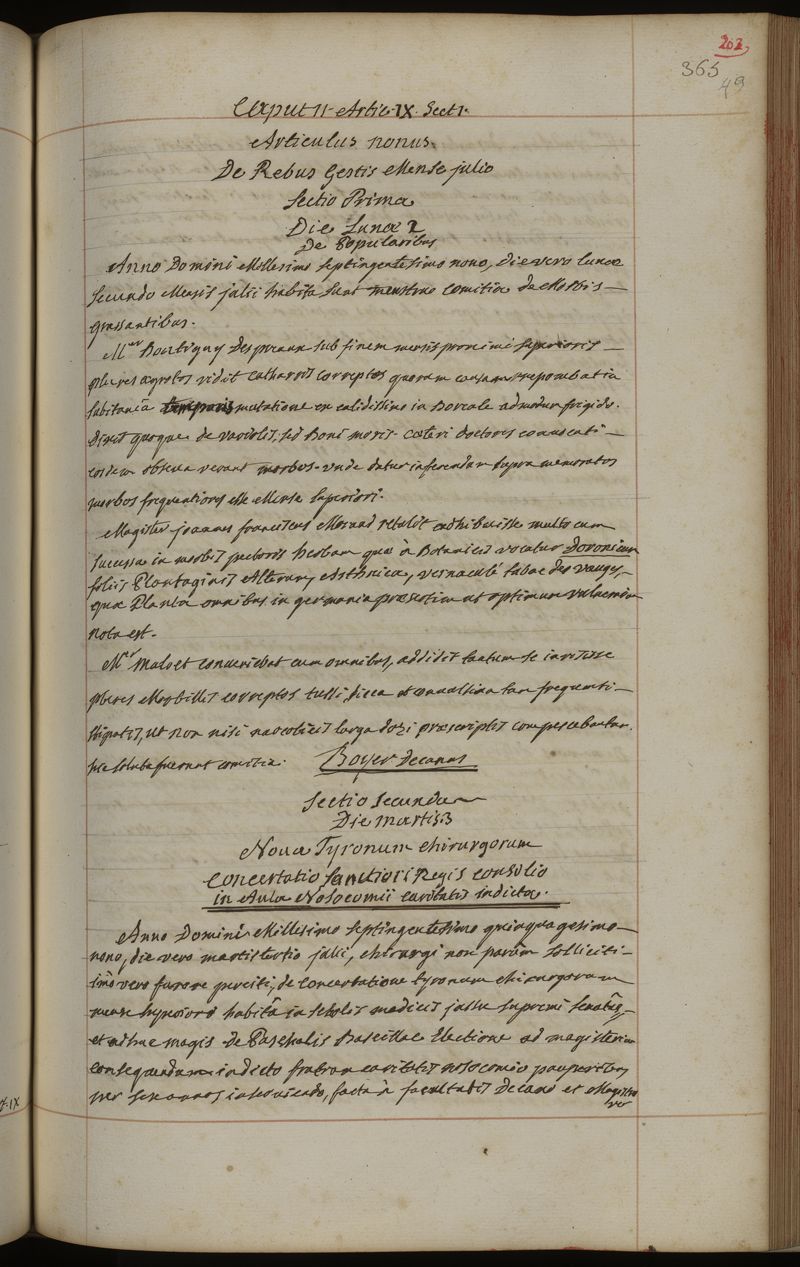 202
365
49
Caput II Artic. IX. Sect I.
Articulus nonus.
De Rebus Gestis Mense julio
Sectio Prima
Die Lunæ 2
De Popularibus
Anno Domini Millesimo septingentesimo nono, die vero lunæ
secundo Mensis julii habita sunt menstrua Comitia de Morbis
grassantibus.
Mer Boutigny Despreaux sub finem mensis proximi superioris
plures ægrotos vidit catharris correptos quorum causam reponebat in
subitaneâ temporis mutatione ex calidissimo in Boreale admodum frigido.
Dixit quoque de variolis, sed Boni moris. cæteri doctores convocati
eosdem observaverant morbos. unde datur inferendum supra memoratos
morbos frequentiores esse Mense superiori.
Magister joannes franciscus Morand retulit adhibuisse multo cum
successu in morbis pectoris herbam quæ à Botanicis vocatur Doronicum
foliis Plantaginis Alterum, Asthnica, vernaculè tabac des vauges,
quæ Planta omnibus in germania præsertim ut optimum vulnerarium
nota est.
Mer Maloet conveniebat cum omnibus, addidit tantum se invisisse
plures Morbillis correptos tussi sicca et convulsiva tam frequenti
stipatis, ut non nisi narcoticis larga dozi præscriptis compescebantur.
sic soluta fuerunt comitia. Boyer decanus
Sectio secunda
Die martis 3
Nova Tyronum chirurgorum
Concertatio Sanctiori Regis consilio
in Aula Nosocomii caritatis indicta.
Anno Domini Millesimo septingentesimo quinquagesimo
nono, die vero martis tertio julii, chirurgi non parùm solliciti
imò vero furore perciti, de concertatione tyronum chirurgorum
habitâ in scholis medicis jussu supremi senatûs,
et adhuc magis de Paschalis Baseillac Electione ad magisterium
consequendum indicto fratrum caritatis nosocomio pauperibus
per sex annos inserviendo, facta à facultatis Decano et Magistro
ver
IX